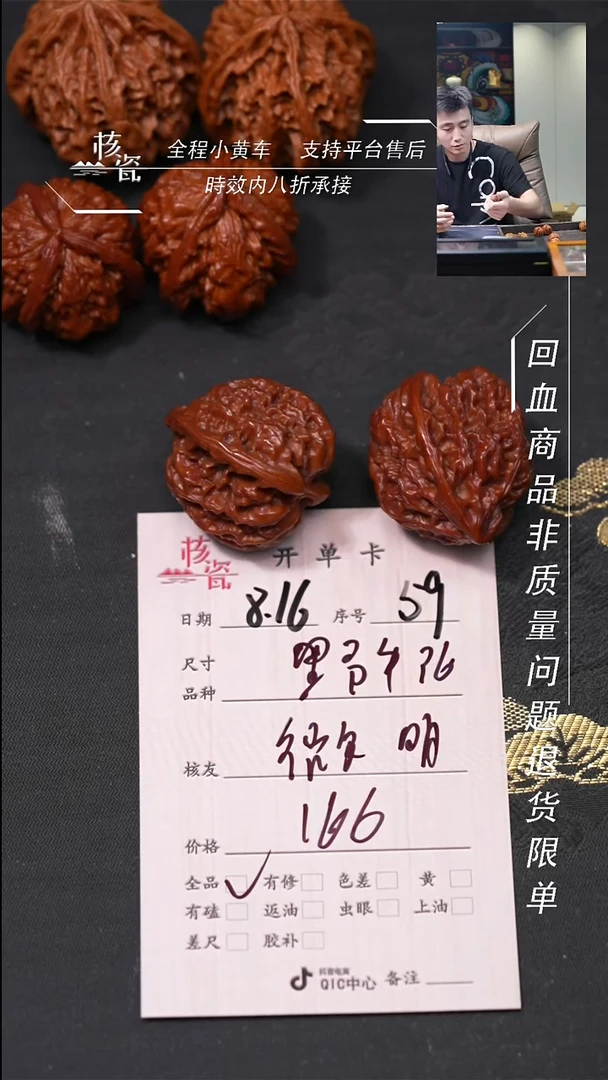 核瓷
全程小黄车 支持平台售后
時效内八折承接
回血商品非质量问题退货限单
核瓷 开单卡
日期 8.16 序号 59
尺寸
品种 野
核友 微 明
价格 166
全品 ✓ 有修 色差 黄
有磕 返油 虫眼 上油
差尺 胶补
抖音电商
QIC中心 备注